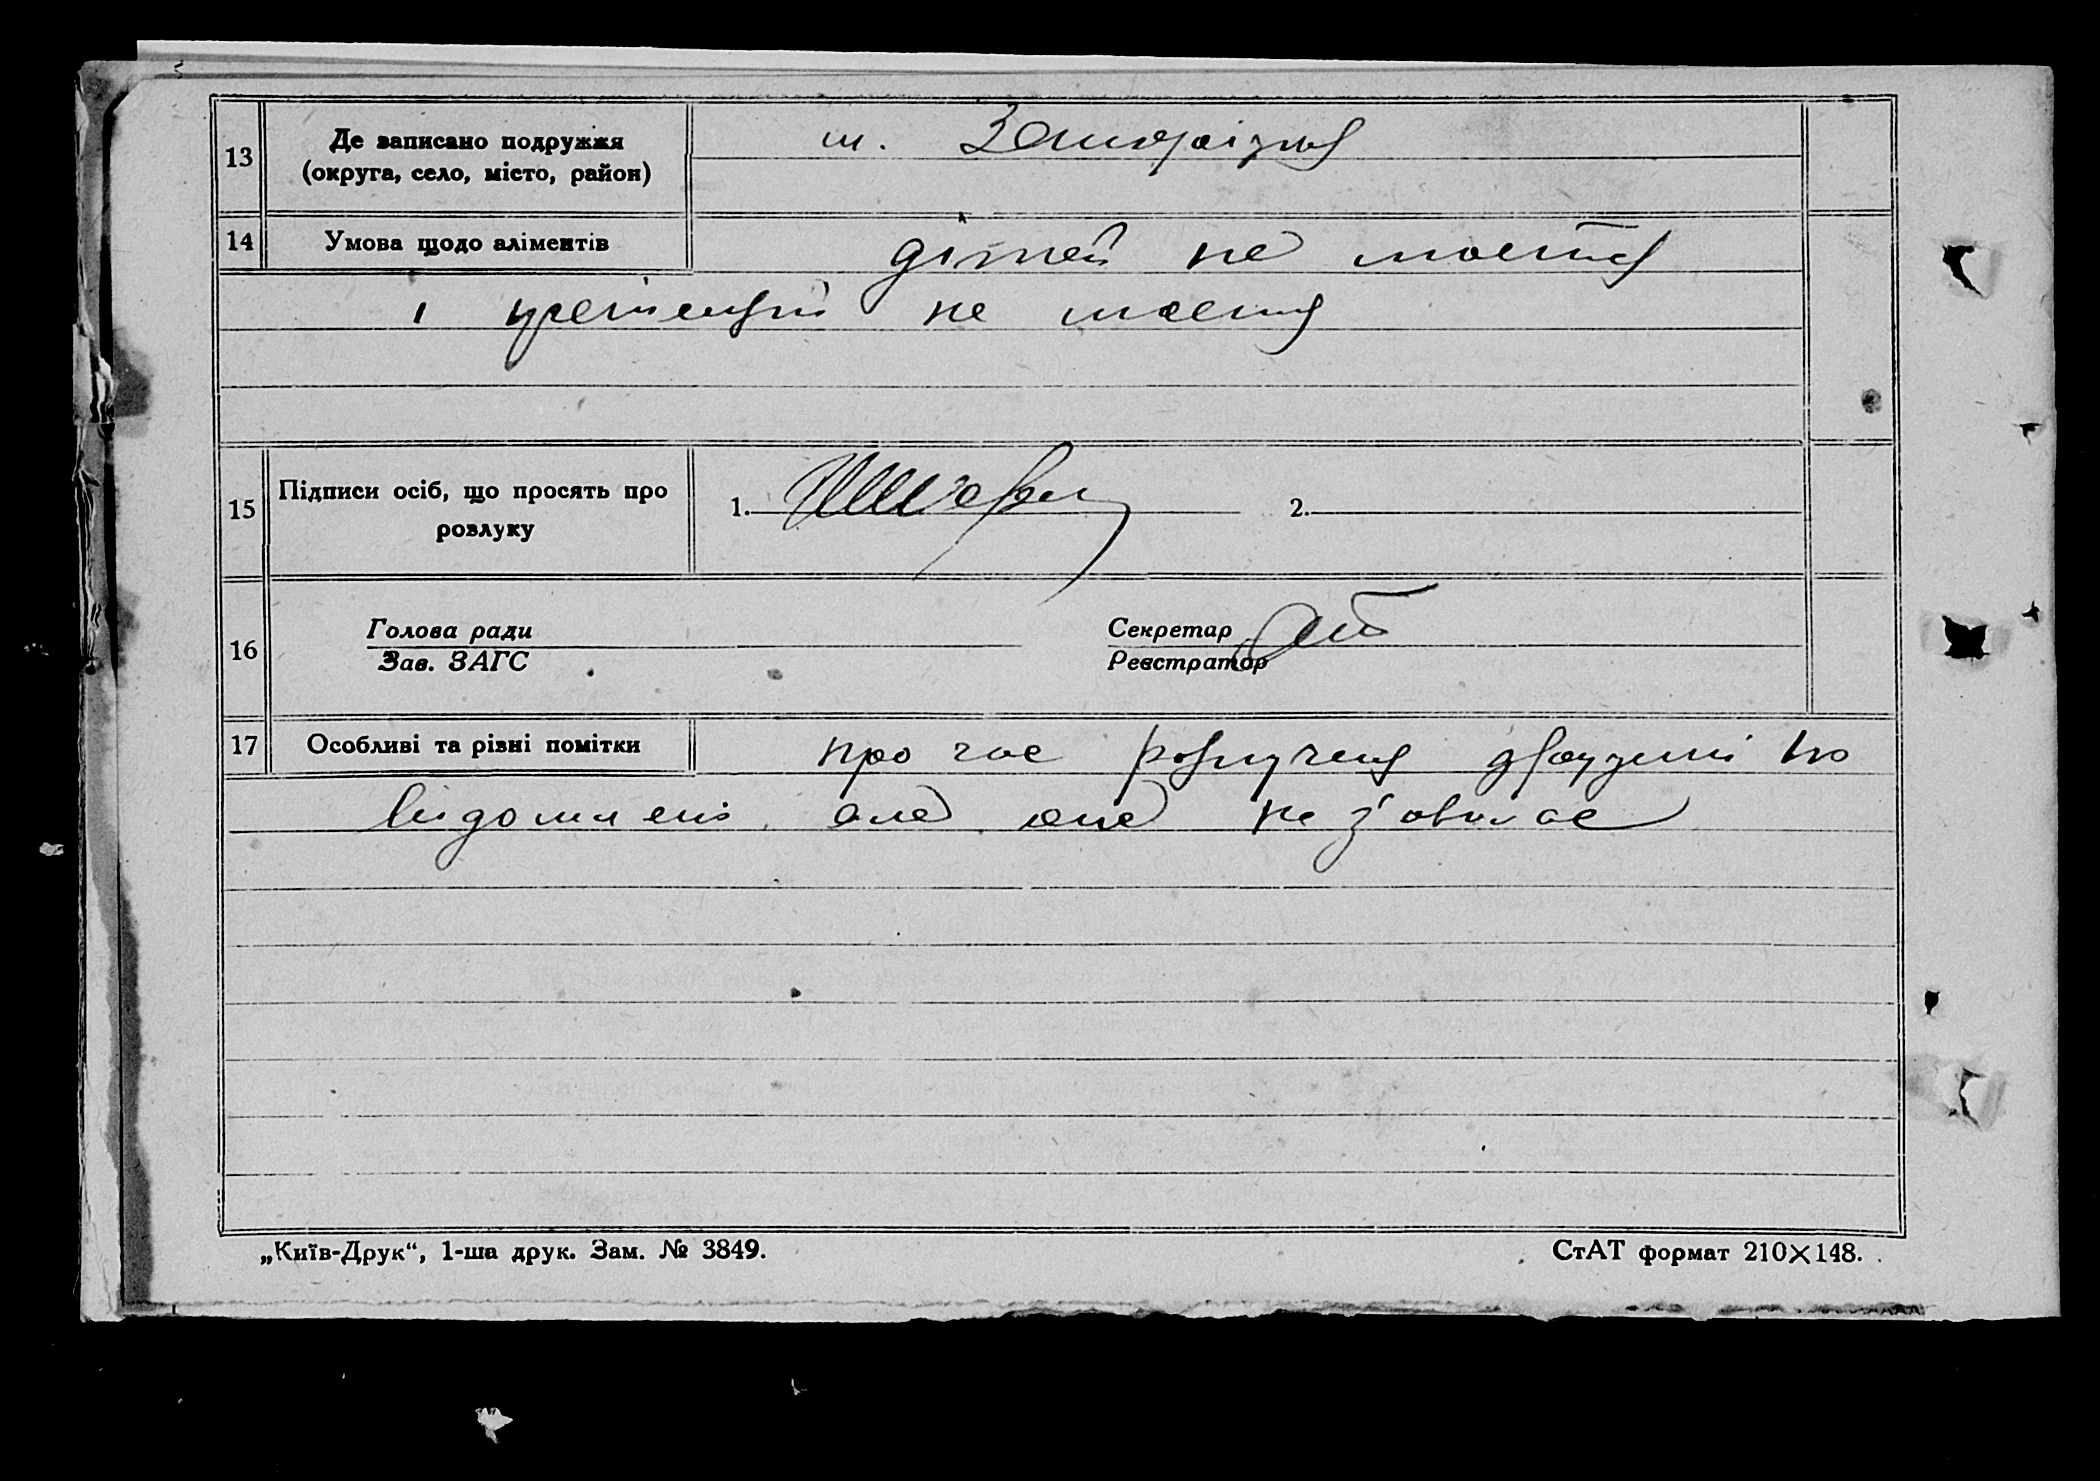 13
Де записано подружжя
(округа, село, місто, район)
м. Запоріжжя
14
Умова щодо аліментів
дітей не мають
і претензій не мають
15
Підписи осіб, що просять про
розлуку
1.
2.
16
Голова ради
Зав. ЗАГС
Секретар
Реєстратор
17
Особливі та різні помітки
про час розлучення по
відомлені але не з'явилас
„Київ-Друк“, 1-ша друк. Зам. № 3849.
СтАТ формат 210×148.